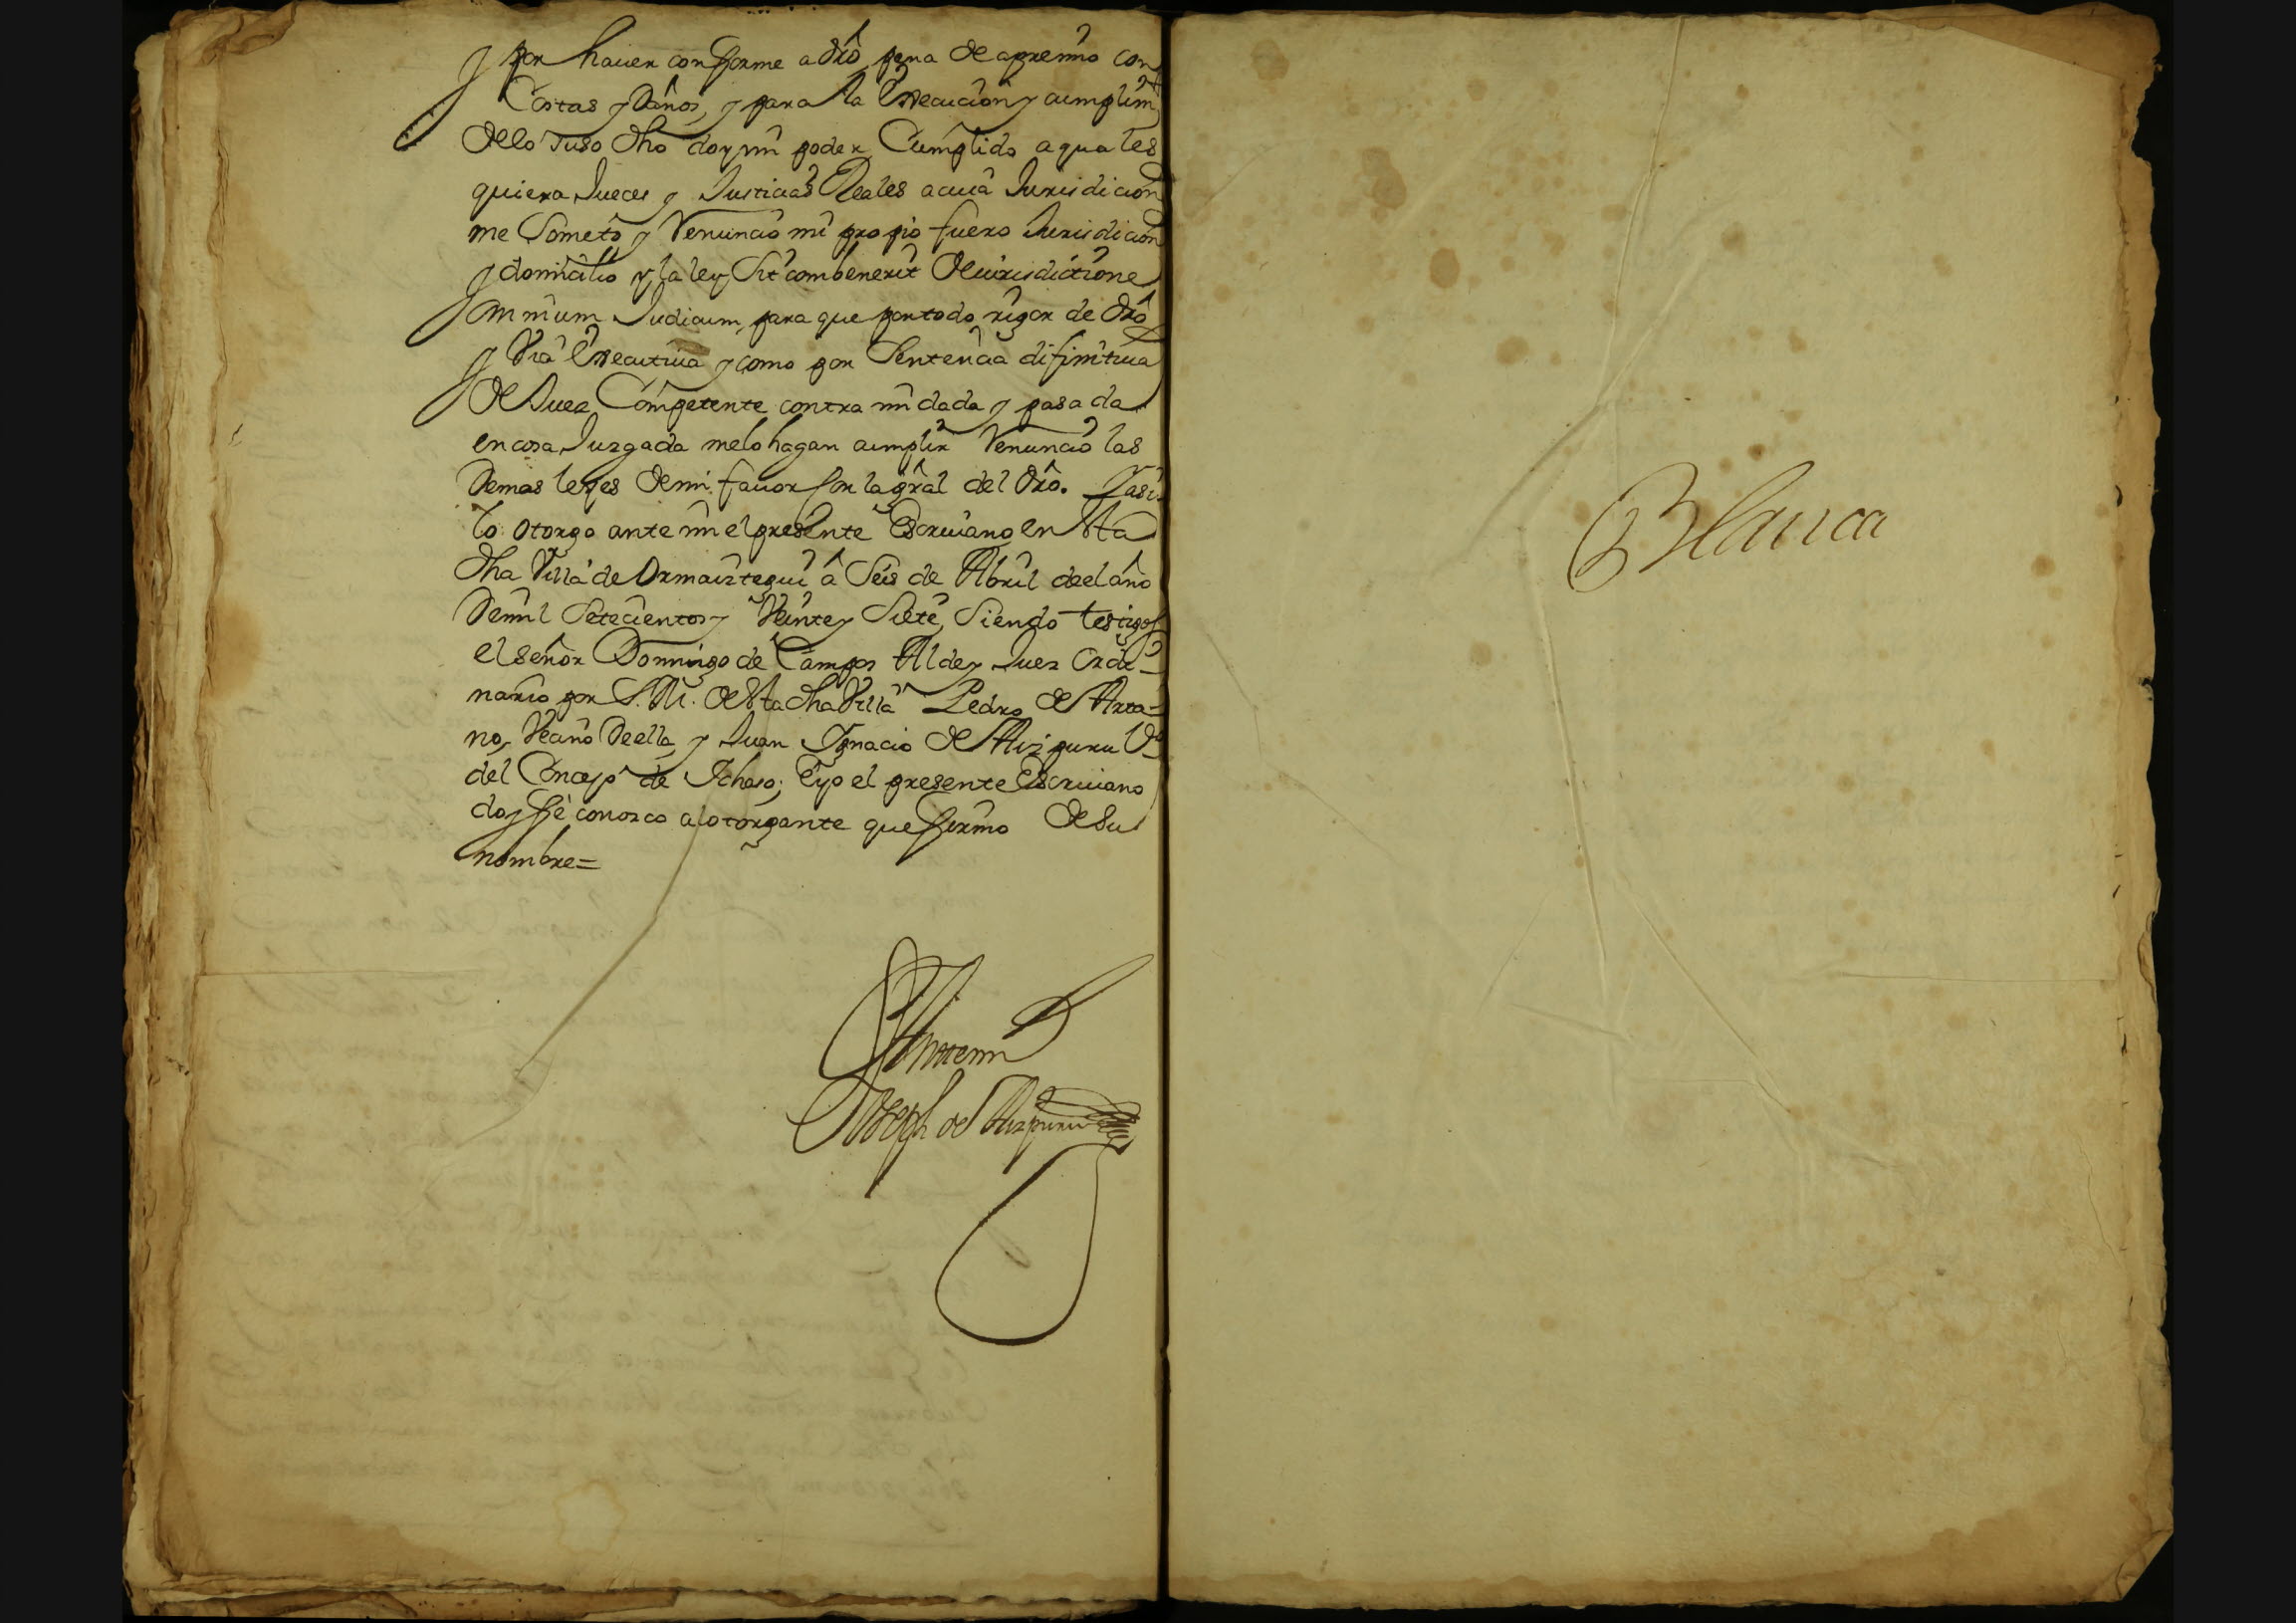 y por hauer conforme a dro pena de apremio con
Costas y Daños, y para la Execucion y cumplimto
dello suso dho doy mi poder Cumplido a quales
quiera Jueces y Justicias Reales a cuia Jurisdicion
me Someto y Renuncio mi propio fuero Jurisdicion
y domicilio y la ley Sit combenerit de iurisdictione
omnium Judicum, para que por todo rigor de dro
y Via Executiua y como por Sentencia difinitiua
de Juez Competente contra mi dada y pasada
en cosa Juzgada me lo hagan cumplir Renuncio las
Demas leyes de mi fauor con la gral del dro. Y asi
lo otorgo ante mi el presente Escriuano en Sta
dha Villa de Ormaiztegui â Seis de Abril de el año
De mil Setecientos y Veinte y Siete, Siendo testigos
el señor Domingo de Campos Alde y Juez Ordi-
nario por S. M. de Sta dha Villa Pedro de Arra-
no, Vecino De ella, y Juan Ygnacio de Aizpuru Vo
del Concejo de Ichaso; E yo el presente Escriuano
doy fe conozco a lo otorgante que firmo de Su
nombre=
Ante mi
Joseph de Aizpuru
Blanca